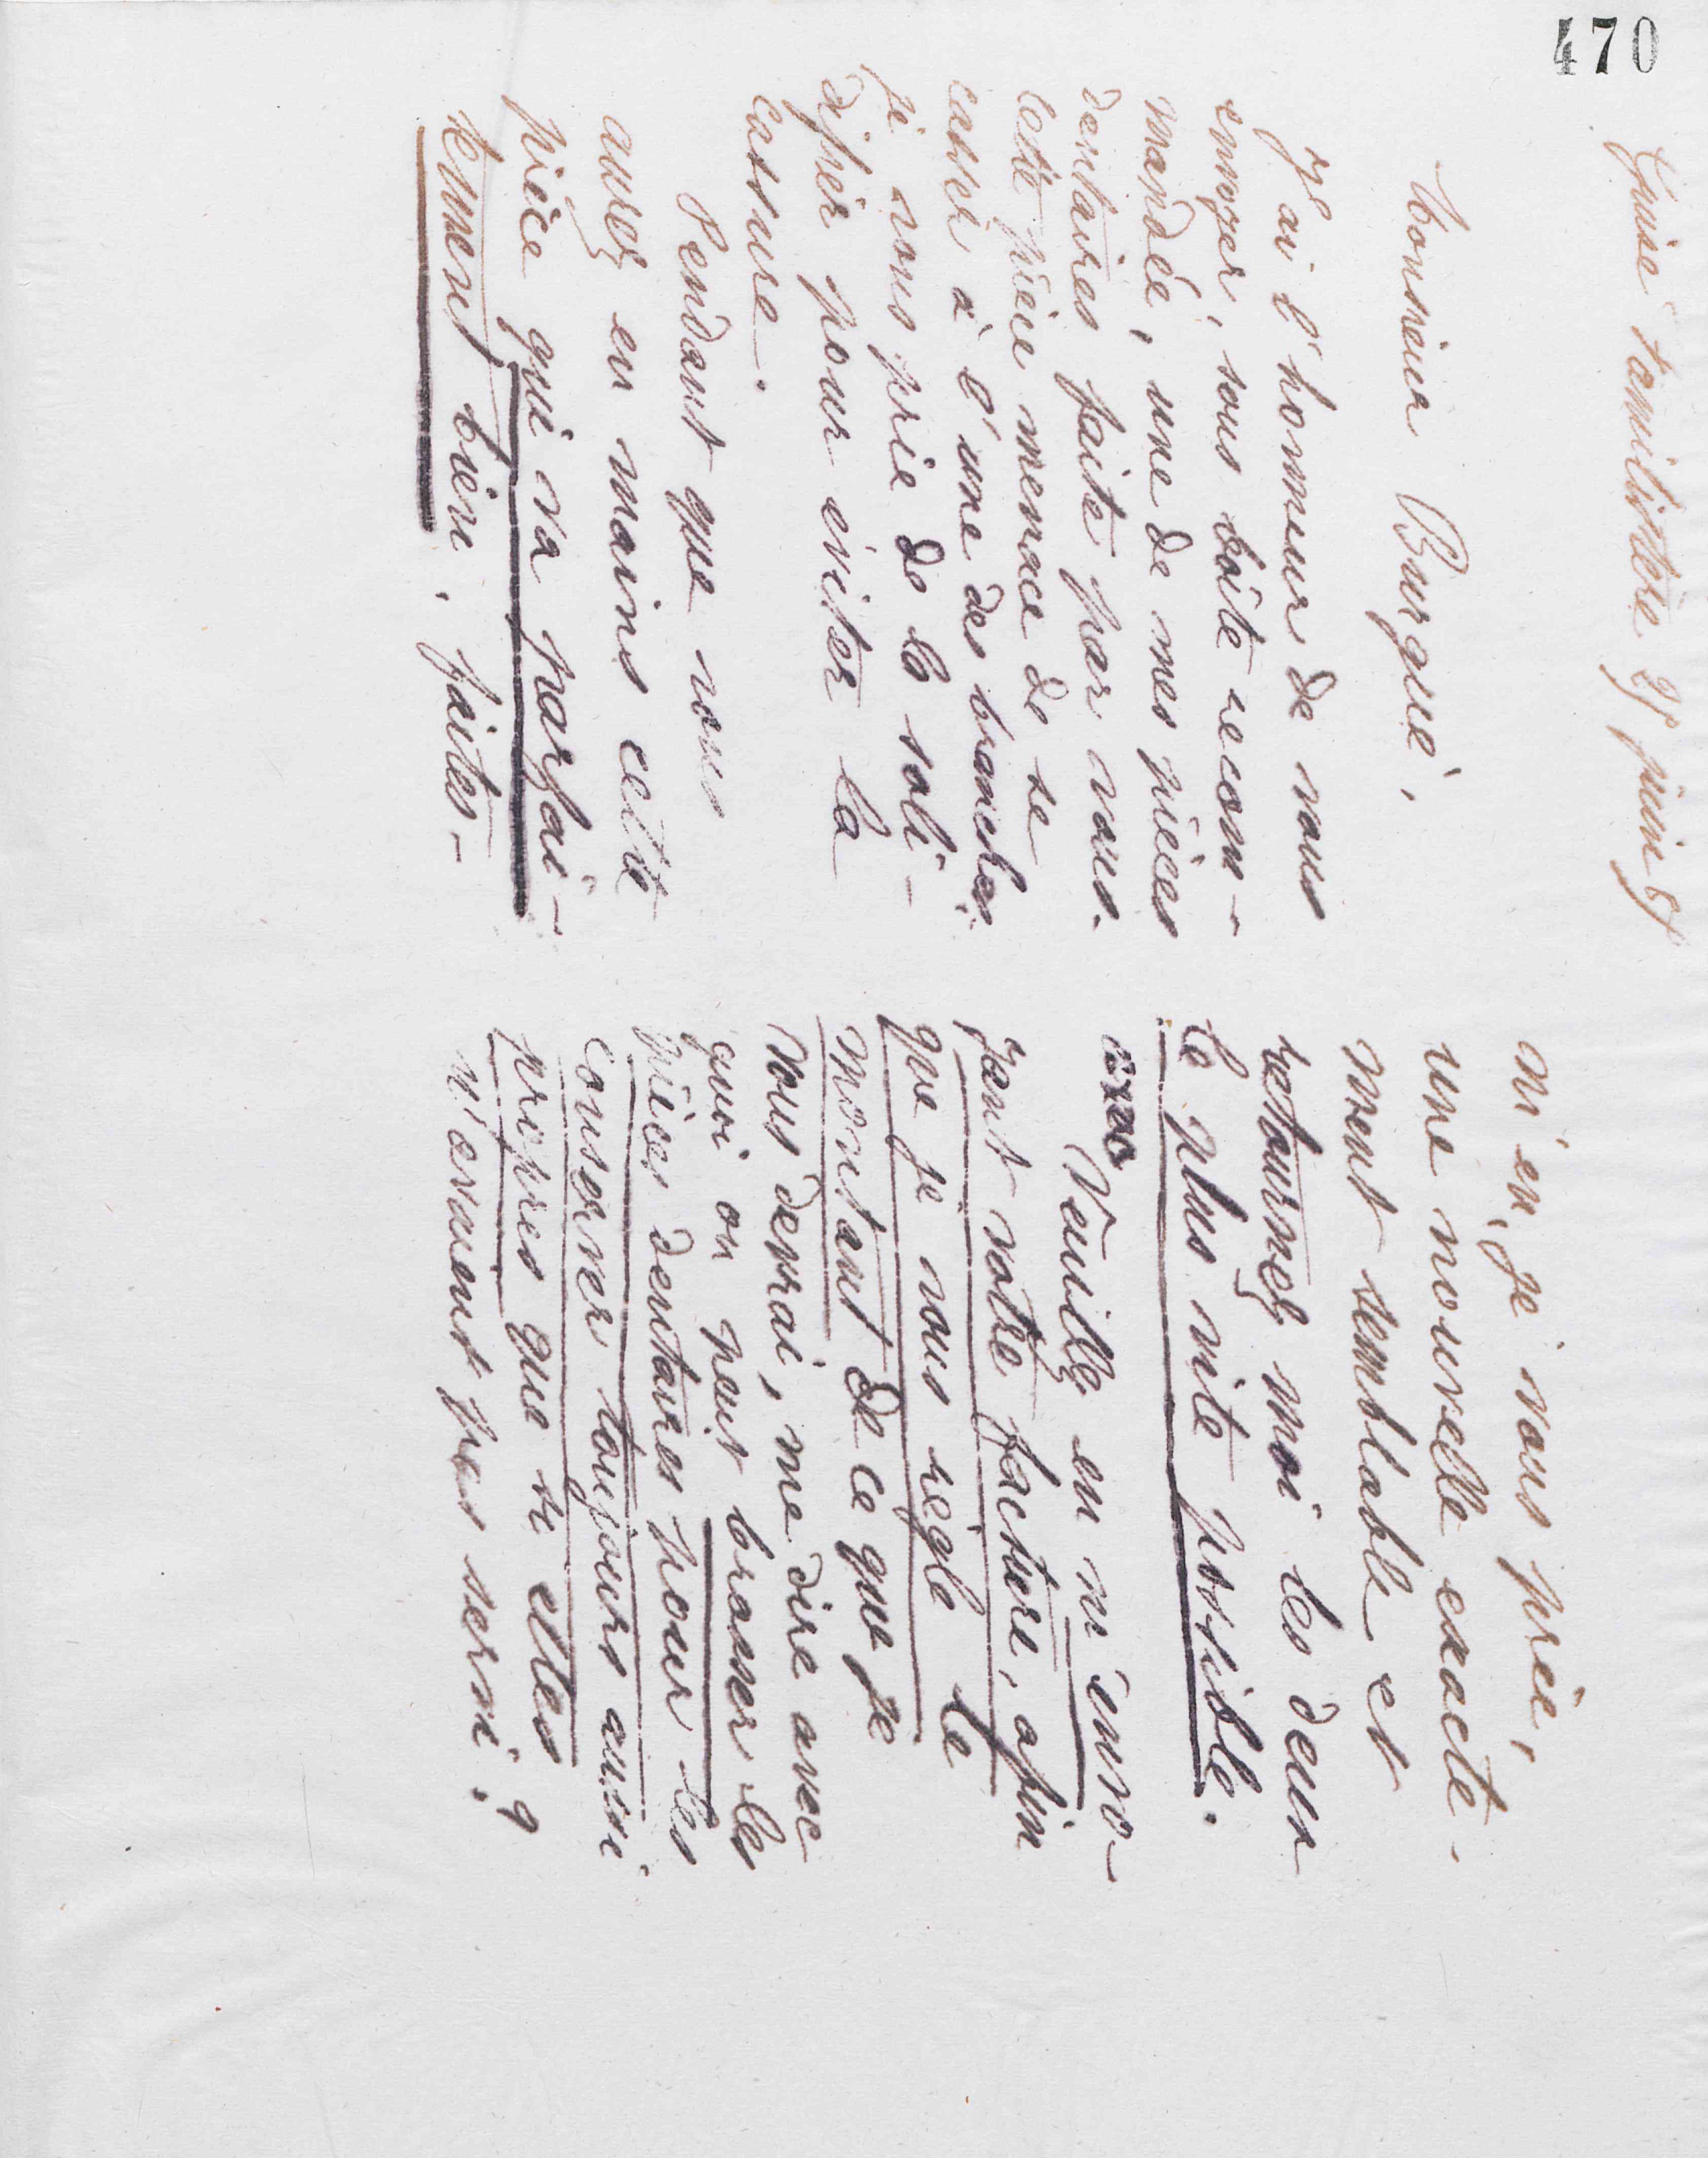 470
Guise Familistère 27 juin 87
Monsieur Burgué,
J'ai l'honneur de vous
envoyer, sous boîte recom-
mandée, une de mes pièces
dentaires faite par vous.
Cette pièce menace de se
casser à l'une des branches.
Je vous prie de la soli-
difier pour éviter la
cassure.
Pendant que vous
aurez en mains cette
pièce qui va parfai-
tement bien, faites-
m'en, je vous prie,
une nouvelle exacte-
ment semblable et
retournez moi les deux
le plus vite possible.
Veuillez en m'envo-
yant votre facture, afin
que je vous règle le
montant de ce que je
vous devrai, me dire avec
quoi on peut brosser les
pièces dentaires pour les
conserver toujours aussi
propres que si elles
n'avaient pas servi ?